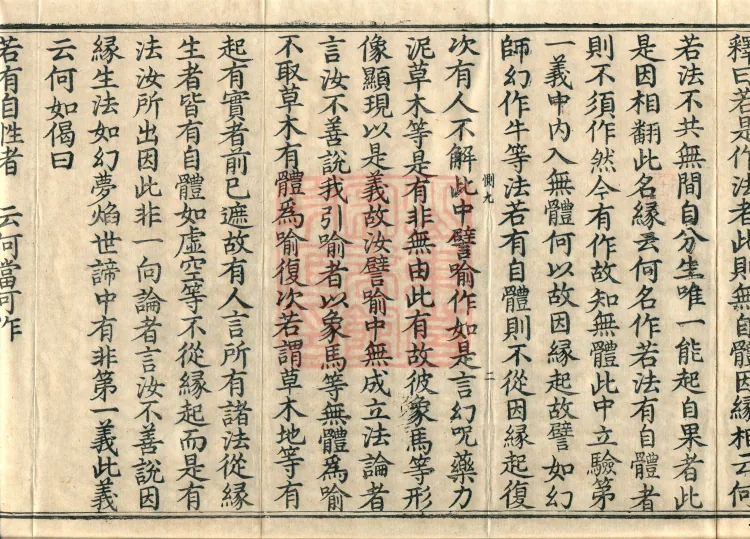 釋曰若是作法者此則無自體因緣相云何
若法不共無間自分生唯一能起自果者此
是因相翻此名緣云何名作若法有自體者
則不須作然今有作故知無體此中立驗第
一義中內入無體何以故因緣起故譬如幻
師幻作牛等法若有自體則不從因緣起復
惻九
二
次有人不解此中譬喻作如是言幻呪藥力
泥草木等是有非無由此有故彼象馬等形
像顯現以是義故汝譬喻中無成立法論者
言汝不善說我引喻者以象馬等無體爲喻
不取草木有體爲喻復次若謂草木地等有
起有實者前已遮故有人言所有諸法從緣
生者皆有自體如虛空等不從緣起而是有
法汝所出因此非一向論者言汝不善說因
緣生法如幻夢焰世諦中有非第一義此義
云何如偈曰
若有自性者　云何當可作